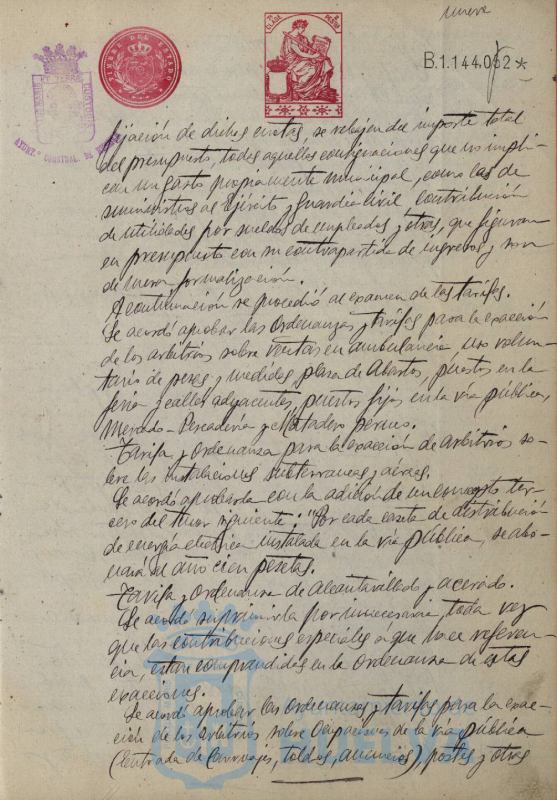 nueve
TIMBRE DEL ESTADO
CLASE
B.1.144,052*
fijación de dichas cuotas se rebajen del importe total
del presupuesto, todas aquellas consignaciones que no impli-
can un gasto propiamente municipal, como las de
suministros al Ejército y Guardia Civil contribución
de utilidades por sueldos de empleados y otras, que figuran
en presupuesto con su contrapartida de ingresos y son
de mera formalización.
A continuación se procedió al examen de las tarifas.
Se acordó aprobar las Ordenanzas y tarifas para la exacción
de los arbitrios sobre ventas en ambulancia uso volun-
tario de pesas y medidas plaza de Abastos, puestos en la
feria y calles adyacentes, puestos fijos en la vía pública,
Mercado-Pescadería y Matadero
Tarifa y Ordenanza para la exacción de arbitrios so-
bre las instalaciones subterraneas y aéreas.
Se acordó aprobarla con la adición de un concepto ter-
cero del tenor siguiente: "Por cada caseta de distribución
de energía eléctrica instalada en la vía pública, se abo-
nará al año cien pesetas.
Tarifa y Ordenanza de Alcantarillado y acerado.
Se acordó suprimirla por innecesaria, toda vez
que las contribuciones especiales a que hace referen-
cia, están comprendidas en la Ordenanza de estas
exacciones.
Se acordó aprobar las ordenanzas y tarifas para la exac-
ción de los arbitrios sobre Ocupaciones de la vía pública
(Entrada de Carruajes, toldos, anuncios), postes y otras